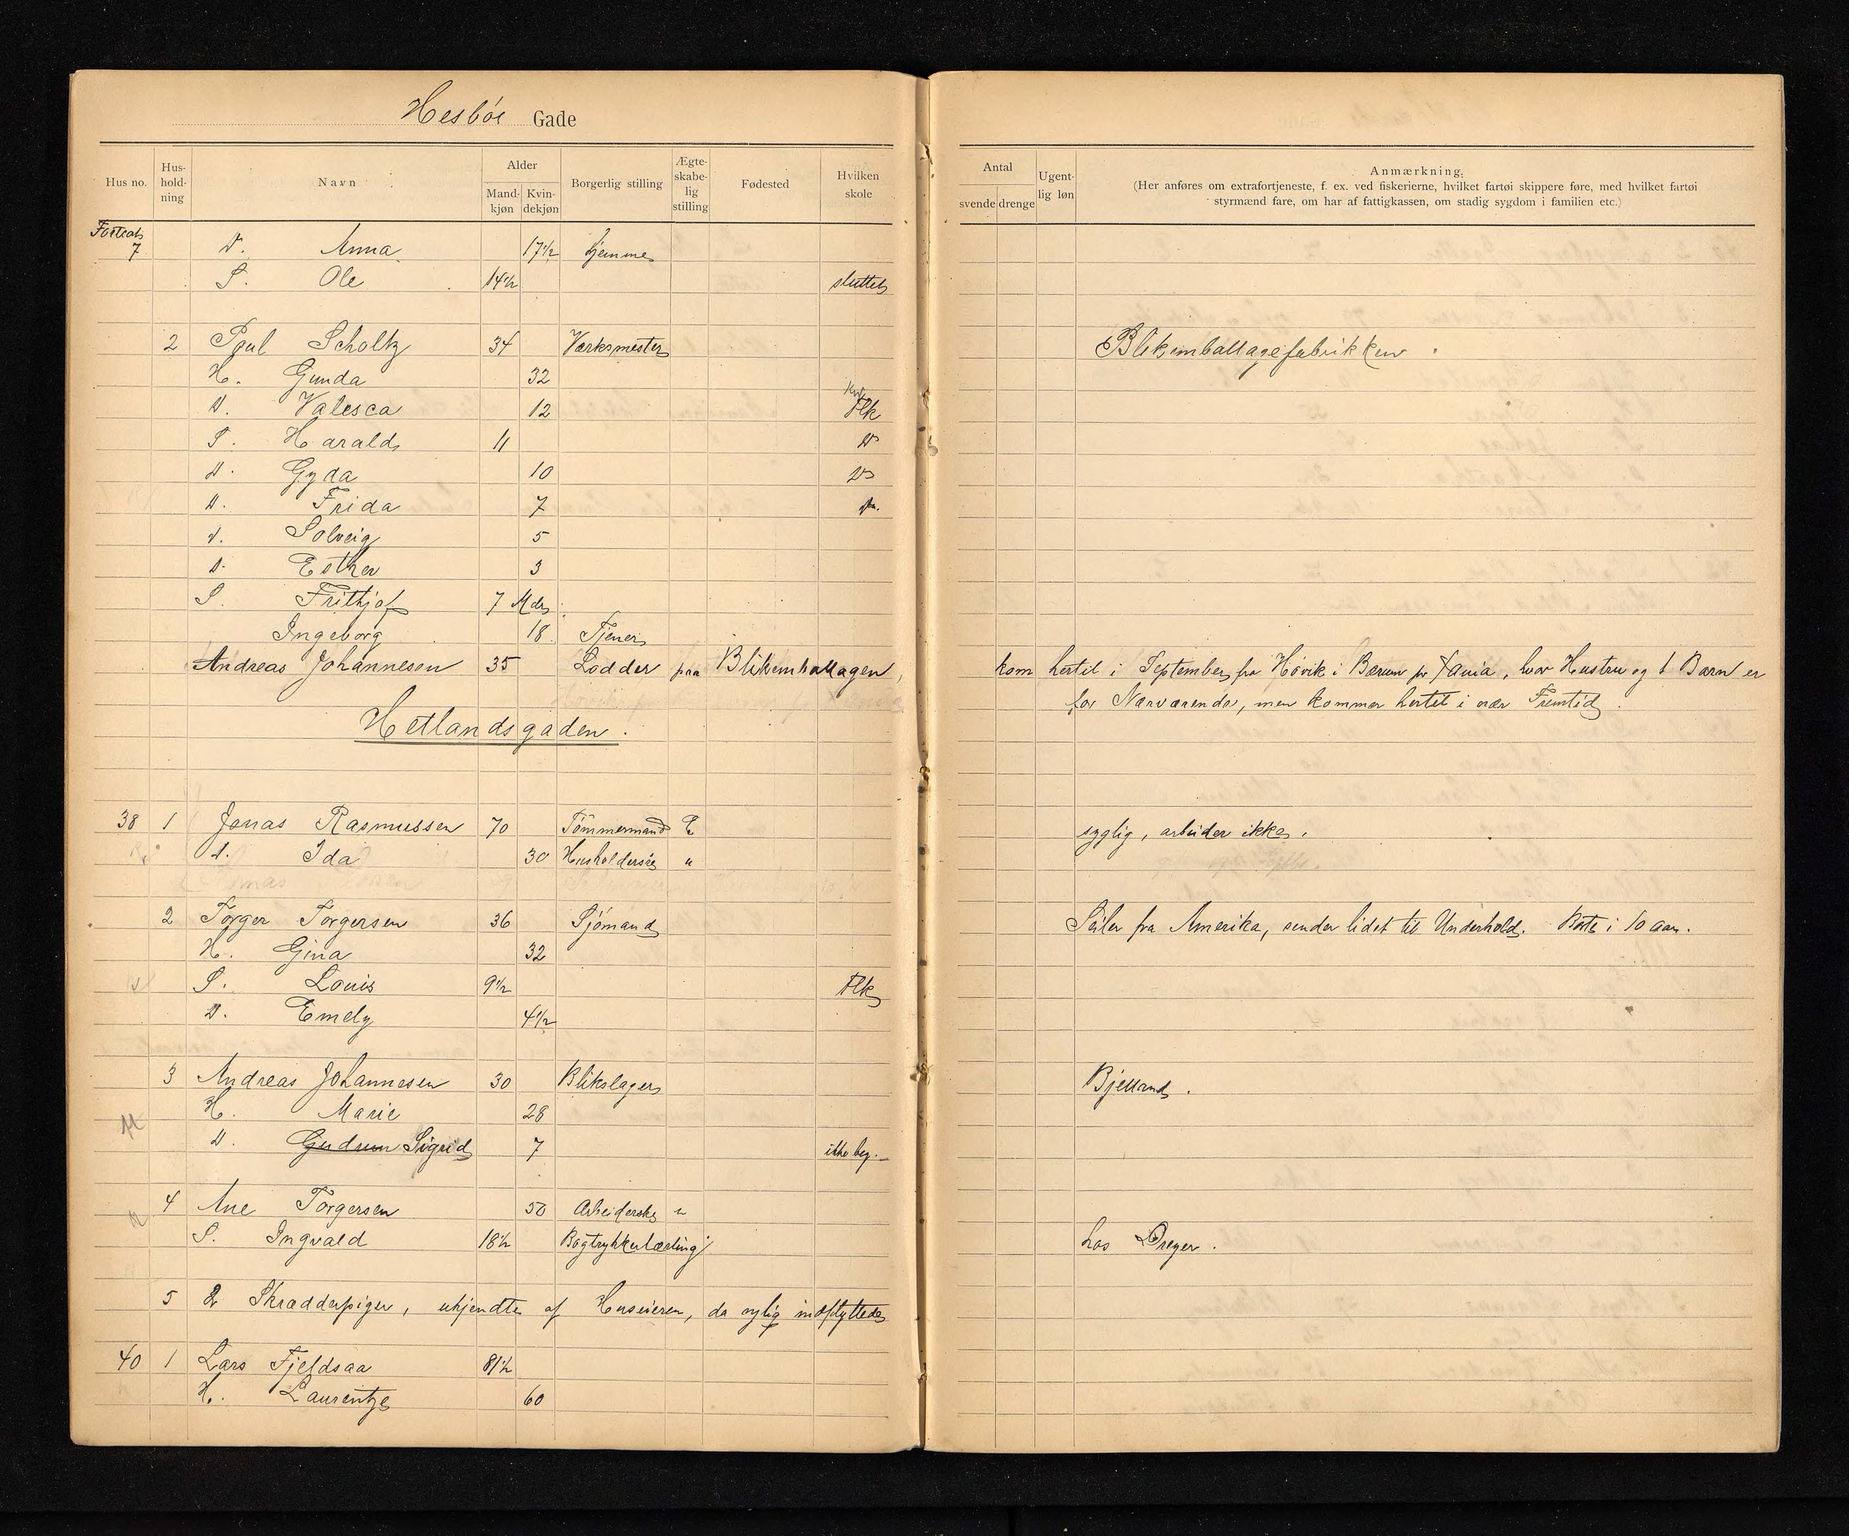 Hesbøe Gade
Hus no. Husholdning Navn Alder Mandkjøn Kvindekjøn Borgerlig stilling Ægteskabelig stilling Fødested Hvilken skole Antal svende drenge Ugentlig løn Anmærkning.
(Her anføres om extrafortjeneste, f. ex. ved fiskerierne, hvilket fartøi skippere føre, med hvilket fartøi
styrmænd fare, om har af fattigkassen, om stadig sygdom i familien etc.)
Fortsat
7 D. Anna 17½ hjemme
S. Ole 14½ sluttet
2 Paul Scholtz 34 Værksmester Blikemballagefabrikken.
H. Gunda 32
D. Valesca 12 Flk
S. Harald 11 D
D. Gyda 10 D
D. Frida 7
D. Solveig 5
D. Esther 3
S. Frithjof 7 Mdr
Ingeborg 18 Tjener
Andreas Johannesen 35 Lodder paa Blikemballagen, kom hertil i September fra Høvik i Bærum pr Xania, hvor Hustru og 6 Barn er
for Nærværende, men kommer hertil i nær Fremtid.
Hetlandsgaden.
38 1 Jonas Rasmussen 70 Tømmermand E syglig, arbeider ikke.
D. Ida 30 Husholderske "
2 Torger Torgersen 36 Sjømand Seiler fra Amerika, sender lidet til Underhold. Borte i 10 aar.
H. Gina 32
S. Louis 9½ Flk
D. Emely 4½
3 Andreas Johannesen 30 Blikslager Bjelland.
H. Marie 28
D. Gudrun Sigrid 7 ikke beg.
4 Ane Torgersen 50 Arbeiderske "
S. Ingvald 18½ Bogtrykkerlærling hos Dreyer.
5 2 Skrædderpiger, ukjendte af Huseieren, da nylig indflyttede
40 1 Lars Fjeldsaa 81½
H. Laurentze 60